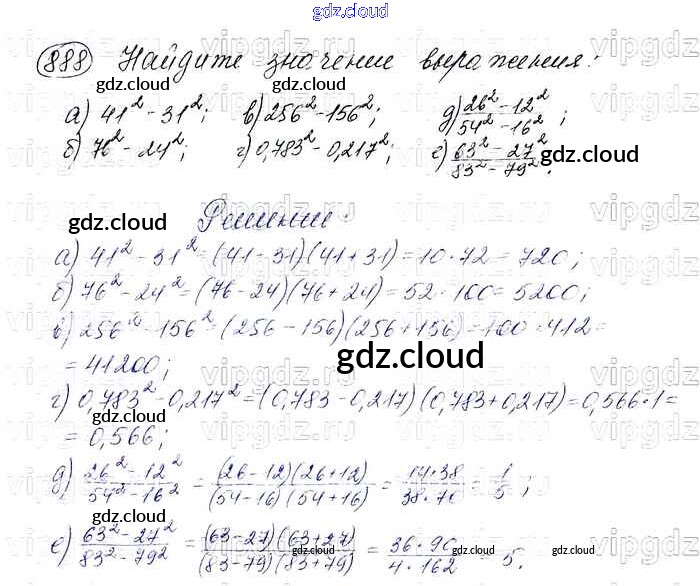 gdz.cloud
888 Найдите значение выражения:
а) 41² - 31²; в) 256² - 156²; д) (26² - 12²)/(54² - 16²);
б) 76² - 24²; г) 0,783² - 0,217²; е) (63² - 27²)/(83² - 79²).
gdz.cloud
Решение:
а) 41² - 31² = (41 - 31)(41 + 31) = 10 · 72 = 720;
б) 76² - 24² = (76 - 24)(76 + 24) = 52 · 100 = 5200;
в) 256² - 156² = (256 - 156)(256 + 156) = 100 · 412 =
= 41200;
gdz.cloud
г) 0,783² - 0,217² = (0,783 - 0,217)(0,783 + 0,217) = 0,566 · 1 =
= 0,566;
д) (26² - 12²)/(54² - 16²) = ((26 - 12)(26 + 12))/((54 - 16)(54 + 16)) = (14 · 38)/(38 · 70) = 1/5;
е) (63² - 27²)/(83² - 79²) = ((63 - 27)(63 + 27))/((83 - 79)(83 + 79)) = (36 · 90)/(4 · 162) = 5.
gdz.cloud